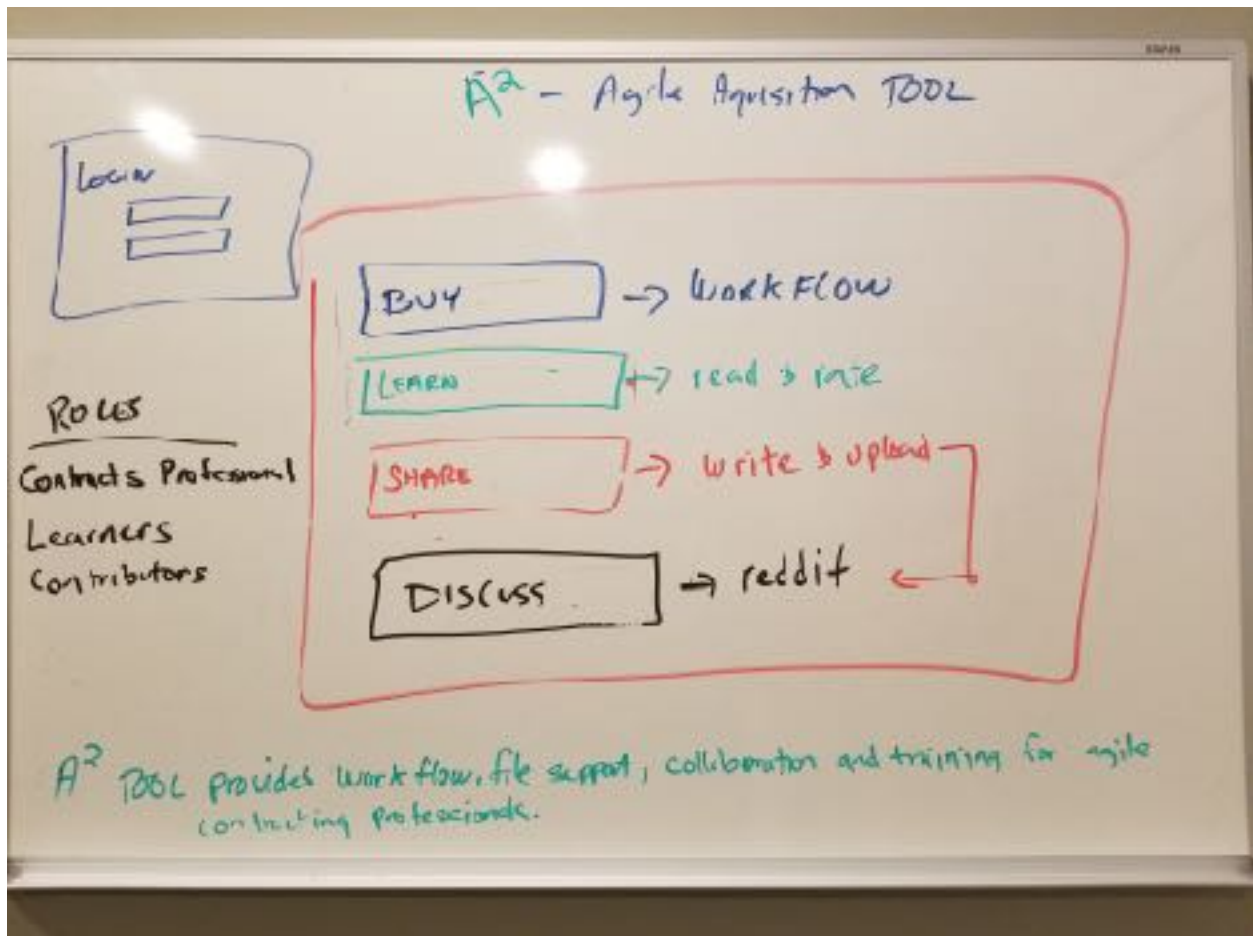 A² - Agile Aquisition TOOL
Login
BUY → WORKFLOW
LEARN → read & rate
SHARE → write & upload
DISCUSS → reddit
ROLES
Contracts Professional
Learners
Contributors
A² TOOL provides workflow, file support, colliboration and training for agile
contracting professionals.